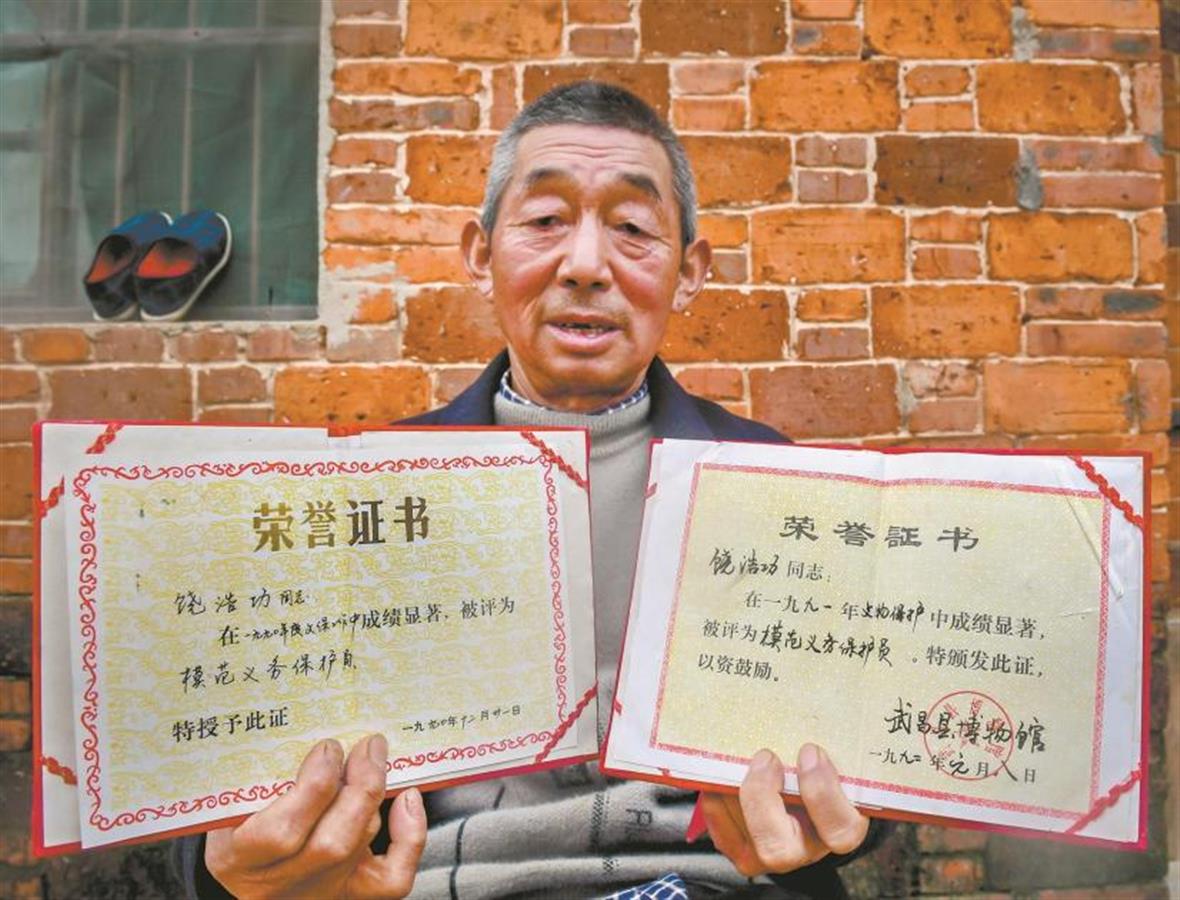 荣誉证书
饶浩功同志:
在一九九〇年度文保工作中成绩显著，被评为
模范义务保护员
特授予此证
一九九〇年十二月廿一日
荣誉証书
饶浩功同志：
在一九九一年文物保护中成绩显著，
被评为模范义务保护员。特颁发此证，
以资鼓励。
武昌县博物馆
一九九二年元月八日